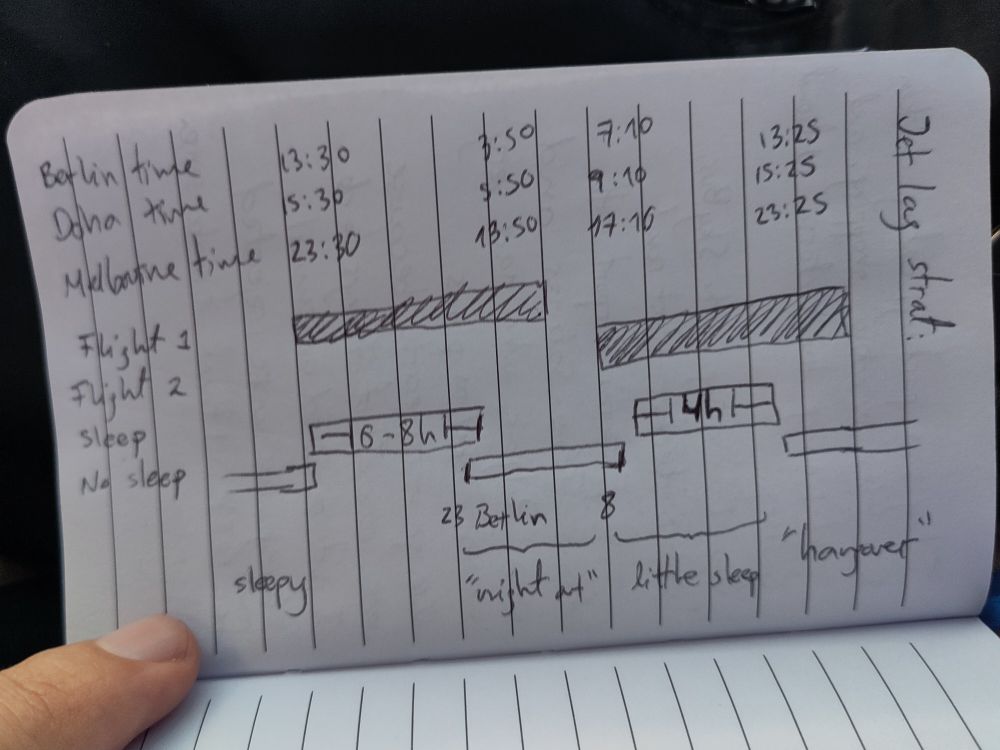 Jet lag strat:
Berlin time 13:30 3:50 7:10 13:25
Doha time 15:30 5:50 9:10 15:25
Melbourne time 23:30 13:50 17:10 23:25
Flight 1
Flight 2
sleep 6-8h 4h
No sleep
23 Berlin 8
sleepy "night out" little sleep "hangover"